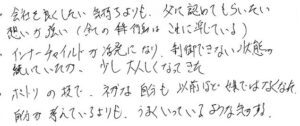 ・会社を良くしたい気持ちよりも、父に認めてもらいたい
想いが強い(今の全ての行動はこれに準じている)
・インナーチャイルドが活発になり、制御できない状態が
続いていたが、少し大人しくなってきた
・ボトリの技で、ネガな自分も以前ほど嫌ではなくなった
自分が考えているよりも、うまくいっているような気がする。